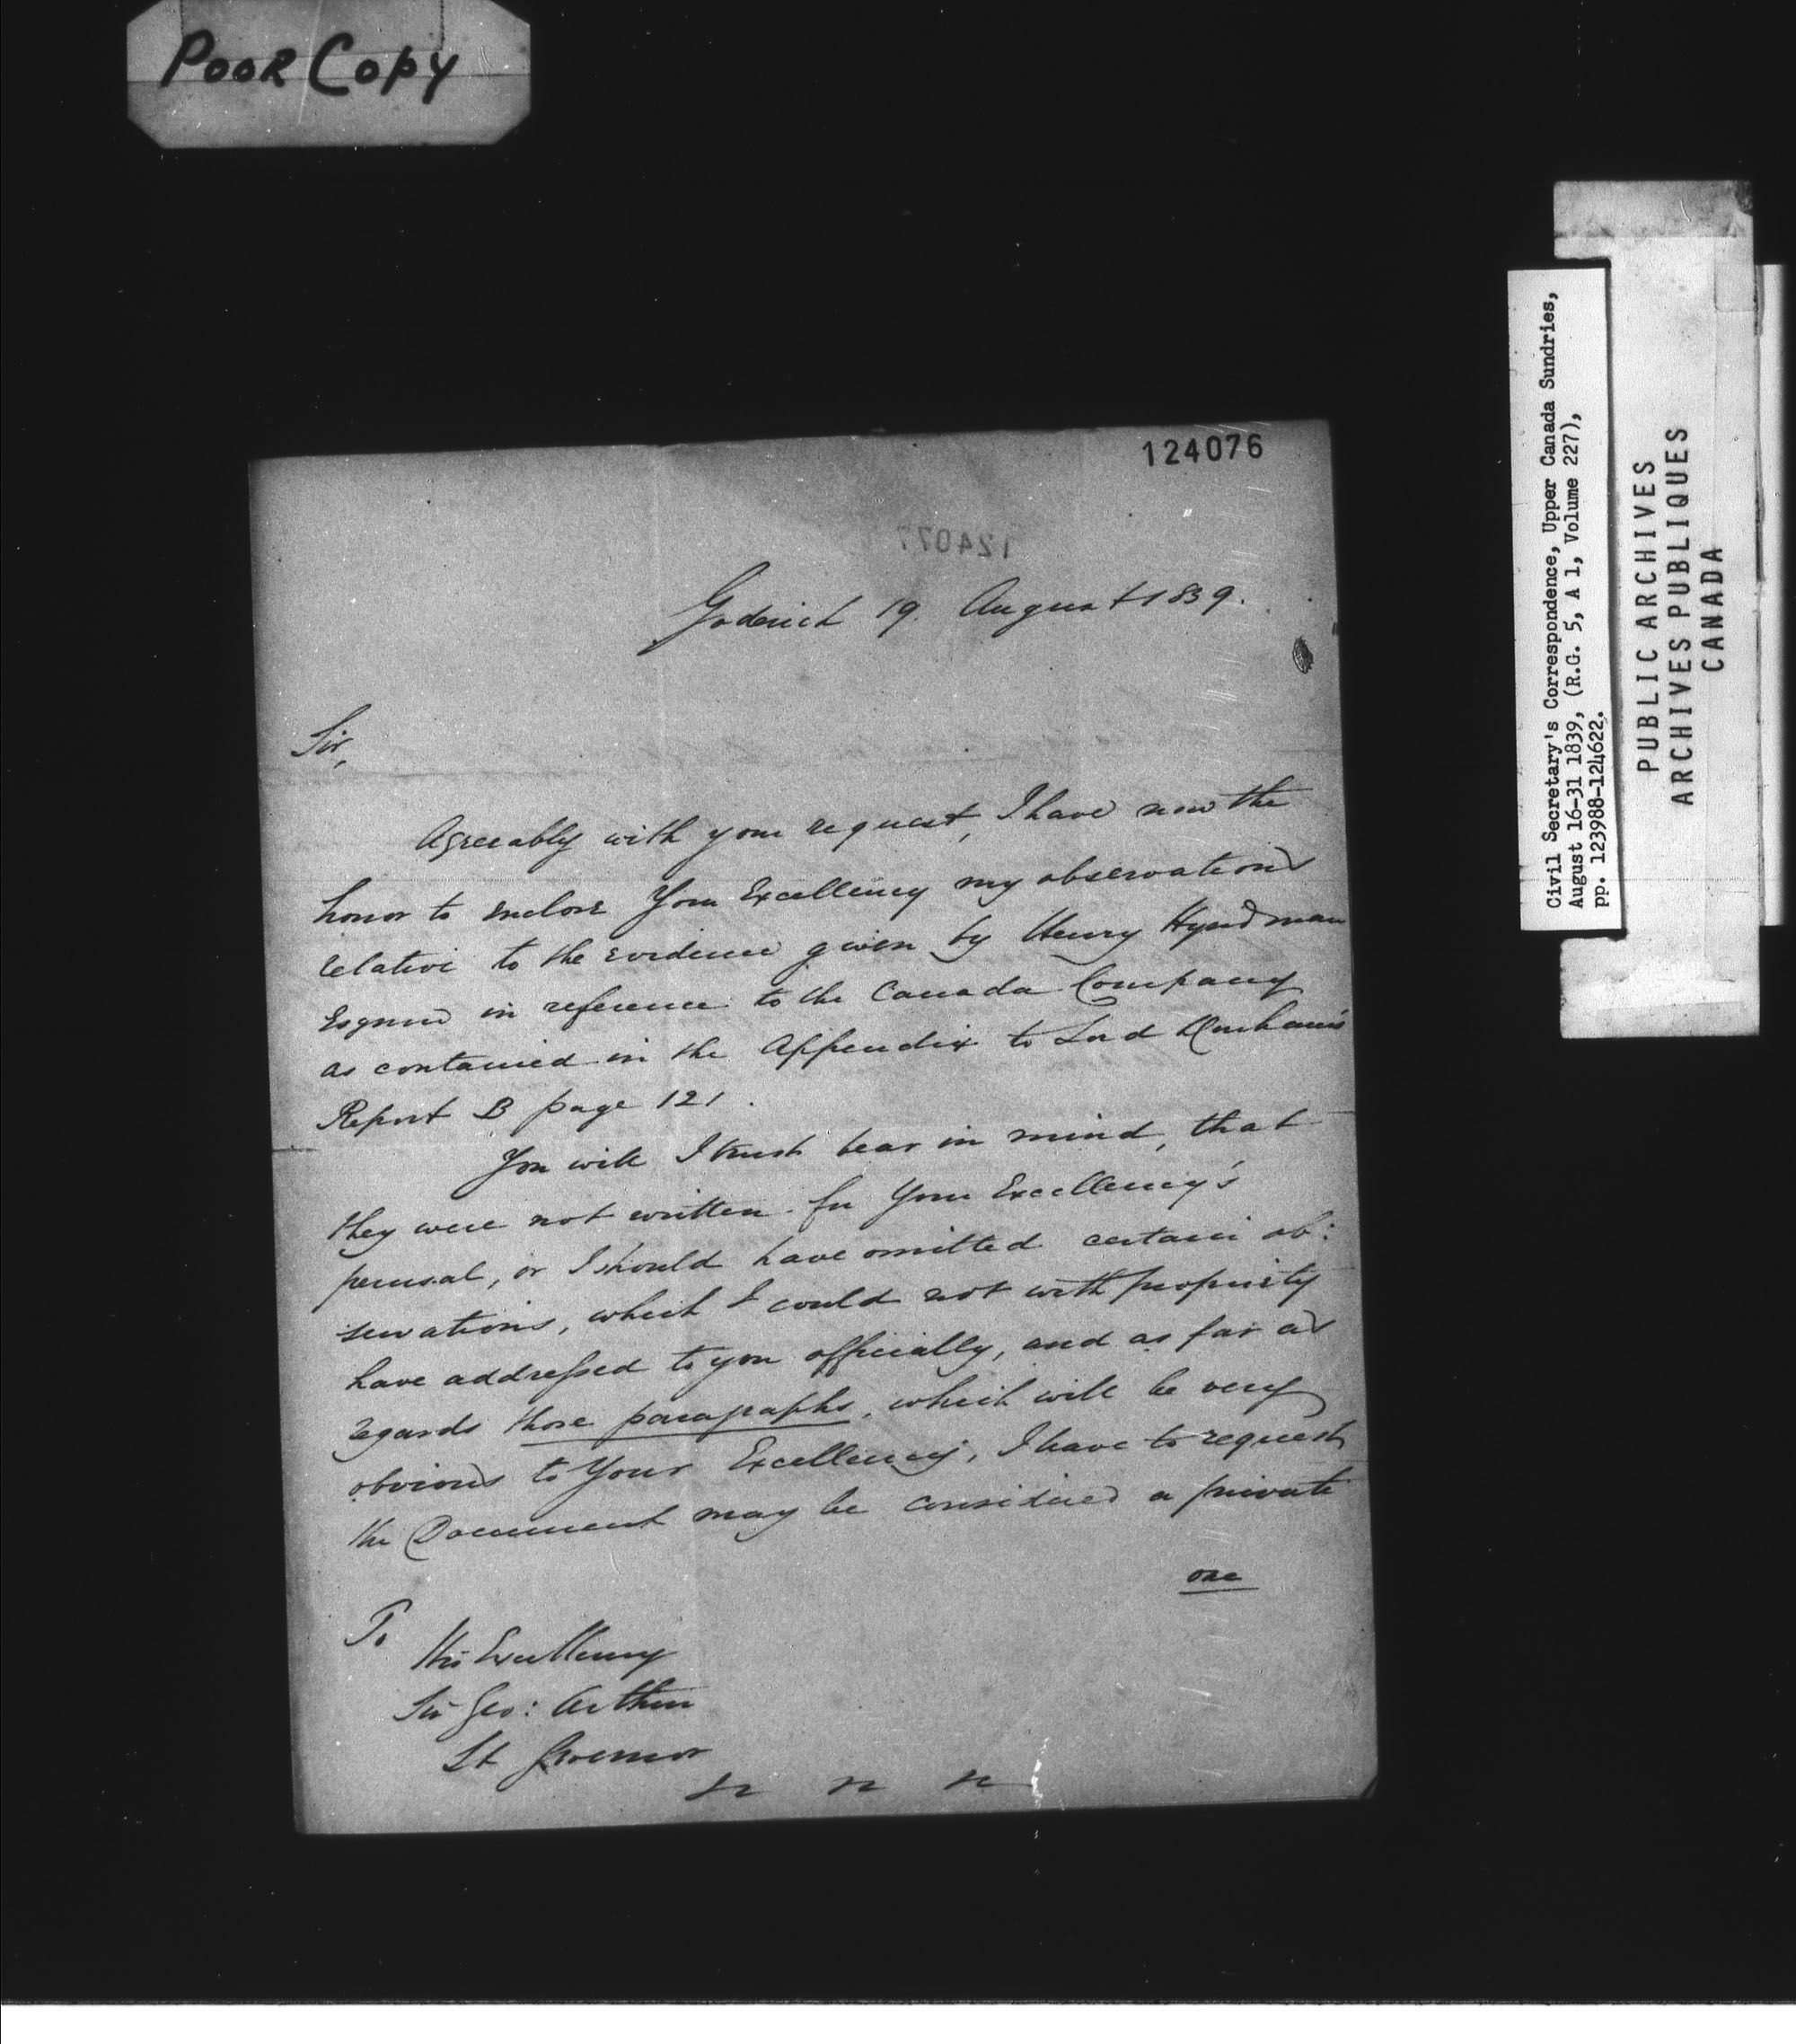 POOR COPY
124076
124077
Goderich 19. August 1839.
Sir,
Agreeably with your request, I have now the
honor to enclose Your Excellency my observations
relative to the evidence given by Henry Hyndman
Esquire in reference to the Canada Company
as contained in the Appendix to Lord Durham's
Report B page 121.
You will I trust bear in mind, that
they were not written for Your Excellency's
perusal, or I should have omitted certain ob:
servations, which I could not with propriety
have addressed to you officially, and as far as
regards those paragraphs, which will be very
obvious to Your Excellency, I have to request
the Document may be considered a private
one
To
His Excellency
Sir Geo: Arthur
Lt Governor
Civil Secretary's Correspondence, Upper Canada Sundries,
August 16-31 1839, (R.G. 5, A 1, Volume 227),
pp. 123988-124622.
PUBLIC ARCHIVES
ARCHIVES PUBLIQUES
CANADA